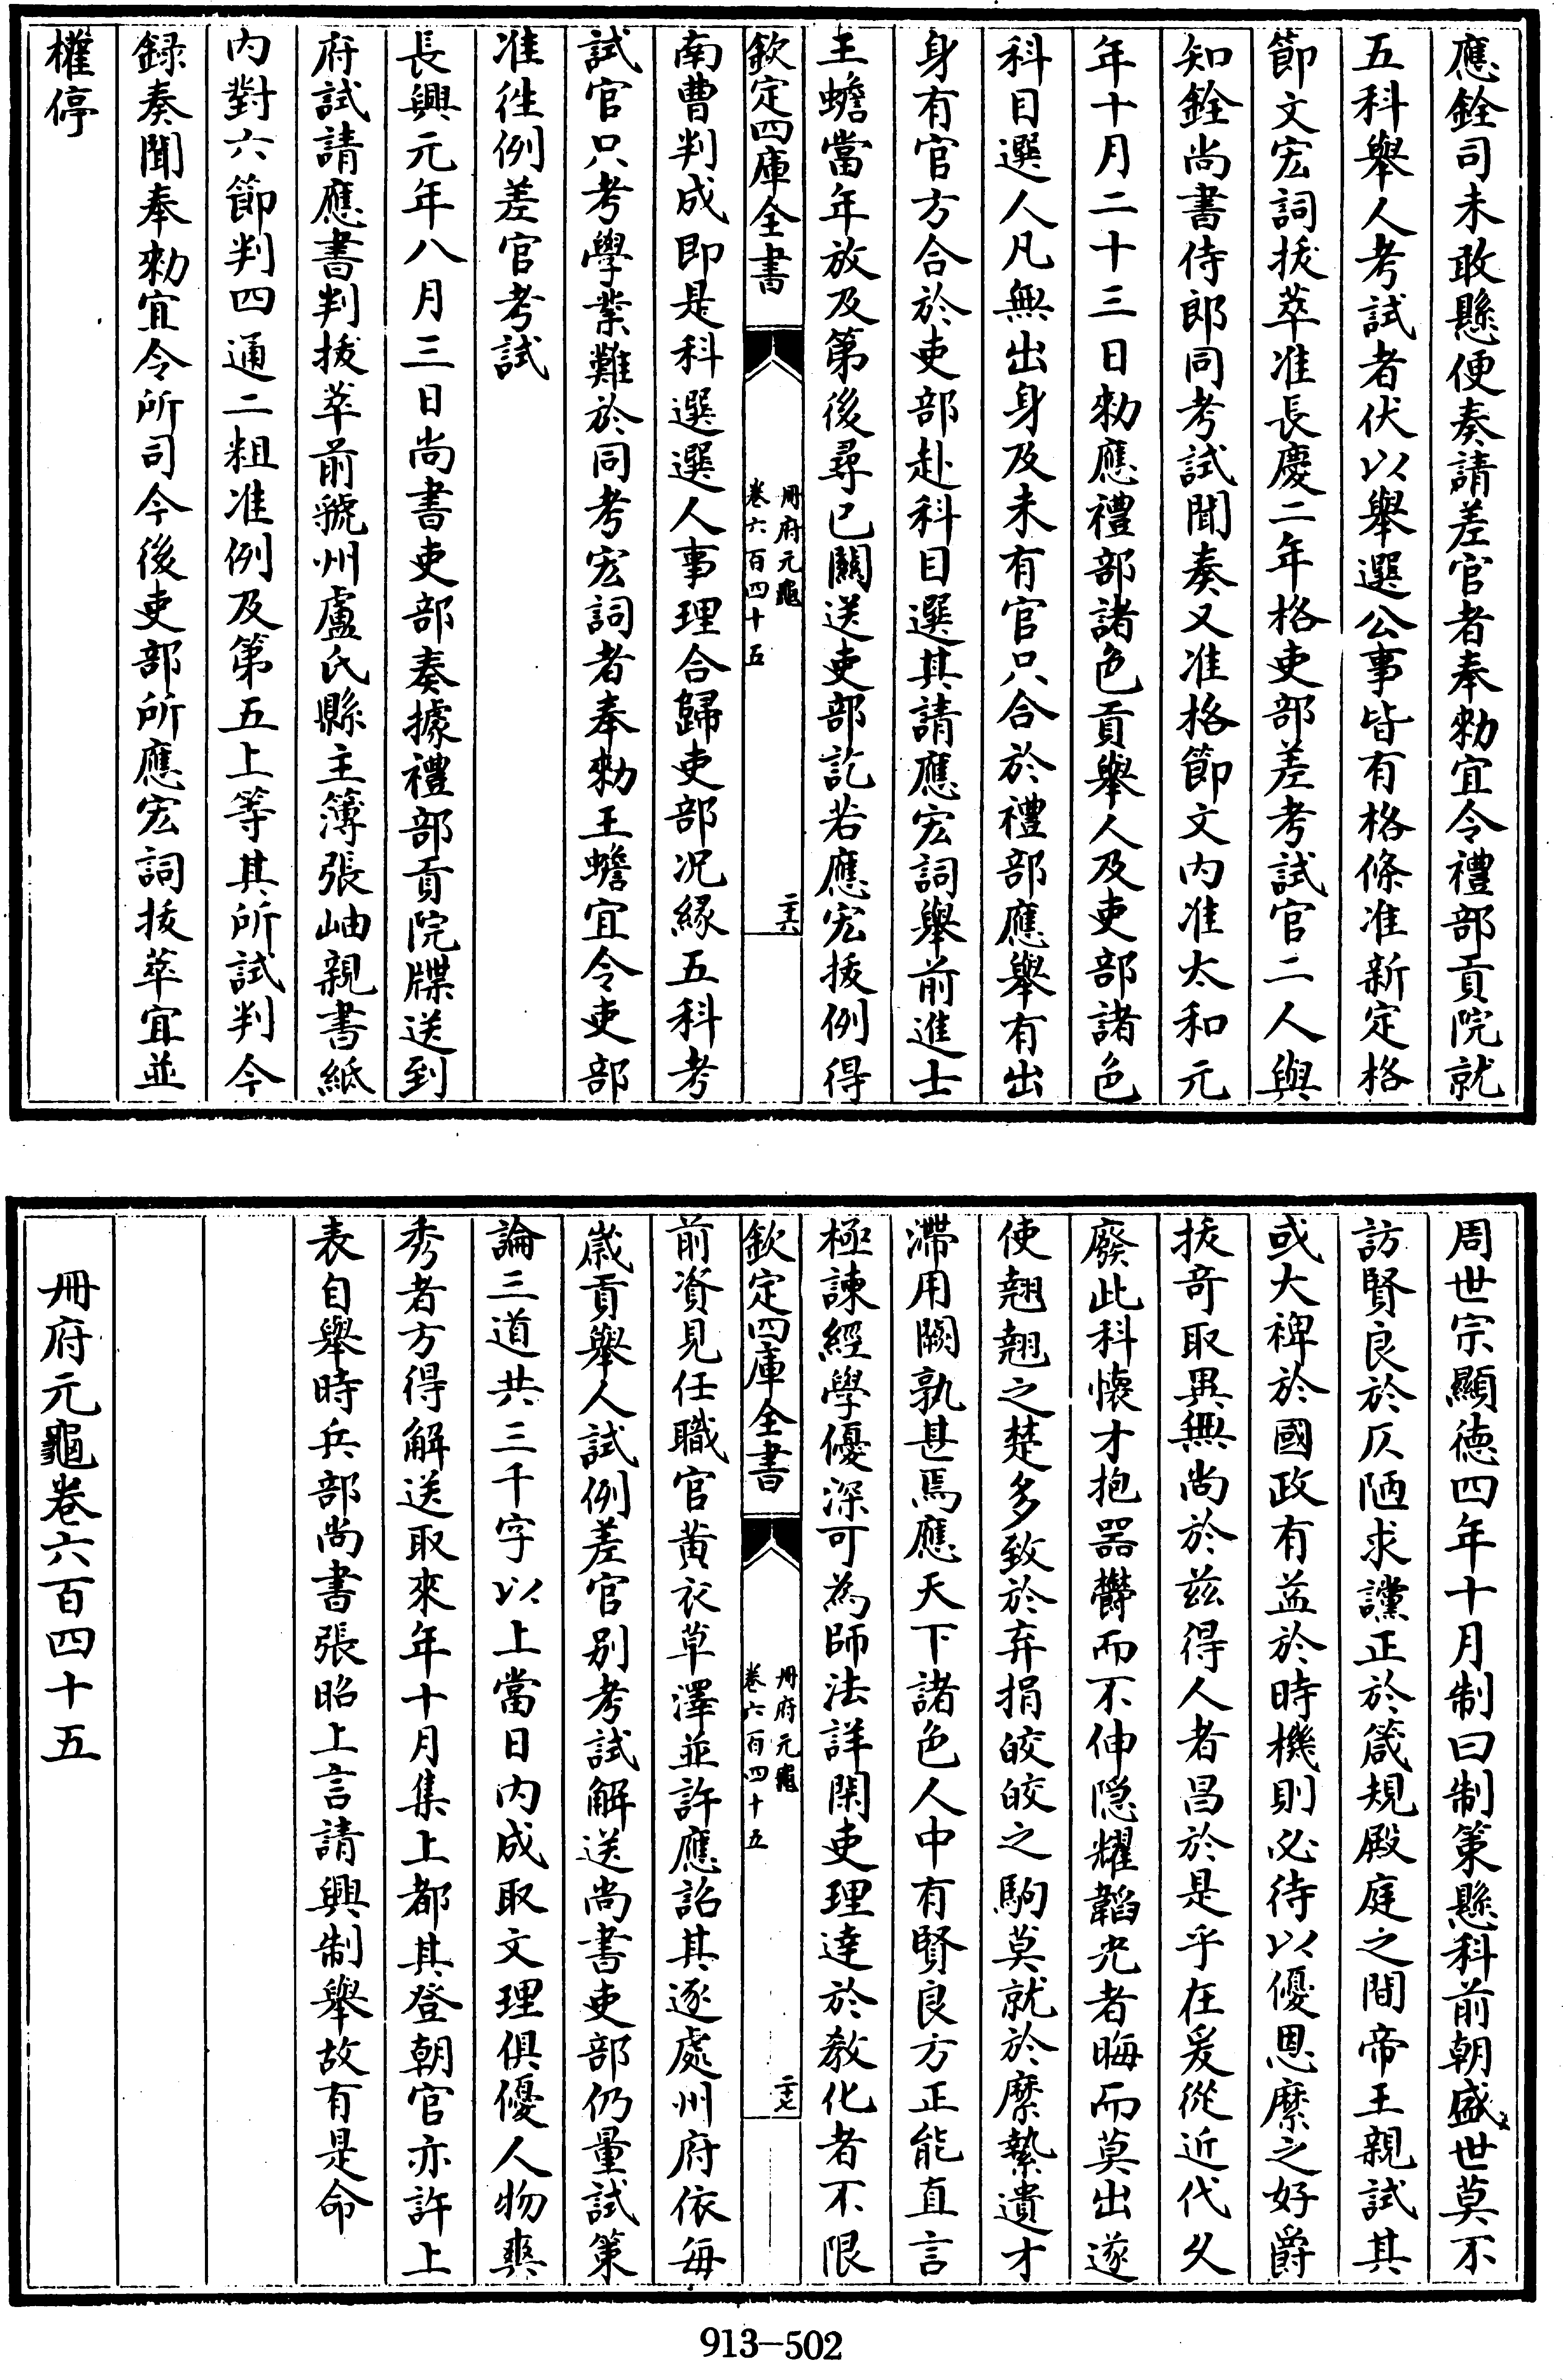 應銓司未敢懸便奏請差官者奉勑宜令禮部貢院就
五科舉人考試者伏以舉選公事皆有格條准新定格
節文宏詞拔萃准長慶二年格吏部差考試官二人與
知銓尚書侍郎同考試聞奏又准格節文内准太和元
年十月二十三日勑應禮部諸色貢舉人及吏部諸色
科目選人凡無出身及未有官只合於禮部應舉有出
身有官方合於吏部赴科目選其請應宏詞舉前進士
王蟾當年放及第後尋已關送吏部訖若應宏拔例得
欽定四庫全書
冊府元龜
卷六百四十五
二十六
南曹判成即是科選選人事理合歸吏部况緣五科考
試官只考學業難於同考宏詞者奉勑王蟾宜令吏部
准徃例差官考試
長興元年八月三日尚書吏部奏據禮部貢院牒送到
府試請應書判拔萃前虢州盧氏縣主簿張岫親書紙
内對六節判四通二粗准例及第五上等其所試判今
録奏聞奉勑宜令所司今後吏部所應宏詞拔萃宜並
權停
周世宗顯德四年十月制曰制策懸科前朝盛世莫不
訪賢良於仄陋求讜正於箴規殿庭之間帝王親試其
或大裨於國政有益於時機則必待以優恩縻之好爵
拔奇取異無尚於兹得人者昌於是乎在爰從近代久
廢此科懷才抱器鬱而不伸隱耀韜光者晦而莫出遂
使翹翹之楚多致於弃捐皎皎之駒莫就於縻縶遺才
滯用闕孰甚焉應天下諸色人中有賢良方正能直言
極諫經學優深可為師法詳閑吏理達於敎化者不限
欽定四庫全書
冊府元龜
卷六百四十五
二十七
前資見任職官黄衣草澤並許應詔其逐處州府依每
嵗貢舉人試例差官别考試解送尚書吏部仍量試策
論三道共三千字以上當日内成取文理俱優人物爽
秀者方得解送取來年十月集上都其登朝官亦許上
表自舉時兵部尚書張昭上言請興制舉故有是命
冊府元龜卷六百四十五
913-502